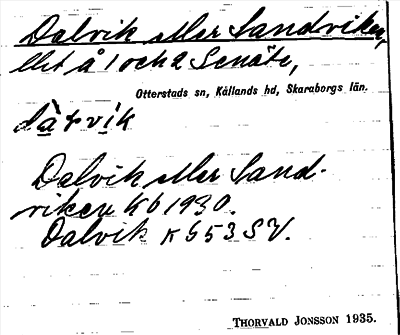 Dalvik eller Sandviken,
lht å 1 och 2 Senäte,
Otterstads sn, Kållands hd, Skaraborgs län.
Dalvik eller Sand-
viken Kb 1930.
Dalvik K G53 SV.
THORVALD JONSSON 1935.